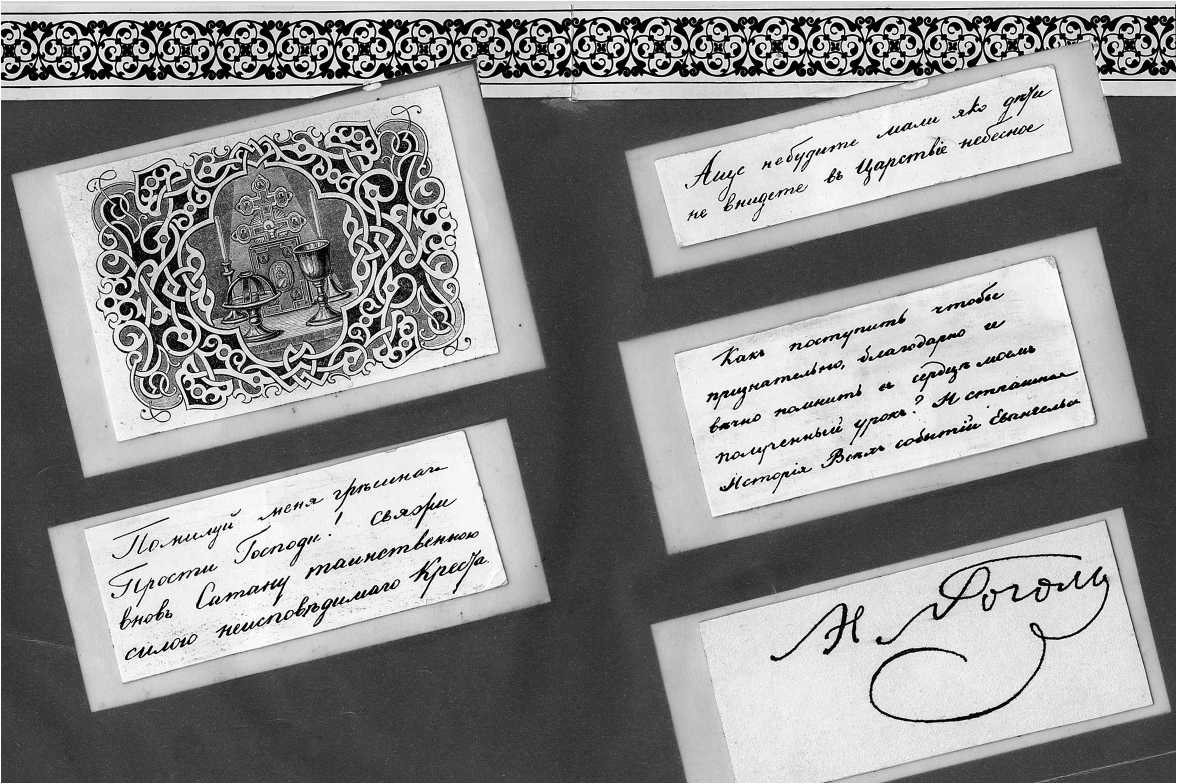 Помилуй меня грѣшнаго
Прости Господи! свяжи
вновь Сатану таинственною
силою неисповѣдимаго Креста
Аще небудите мали яко дѣти
не внидете въ Царствіе небесное
Какъ поступить чтобы
признательно, благодарно и
вѣчно помнить въ сердцѣ моемъ
полученный урокъ? И страшная
Исторія Всѣхъ событій Евангельс
Н. Гоголь